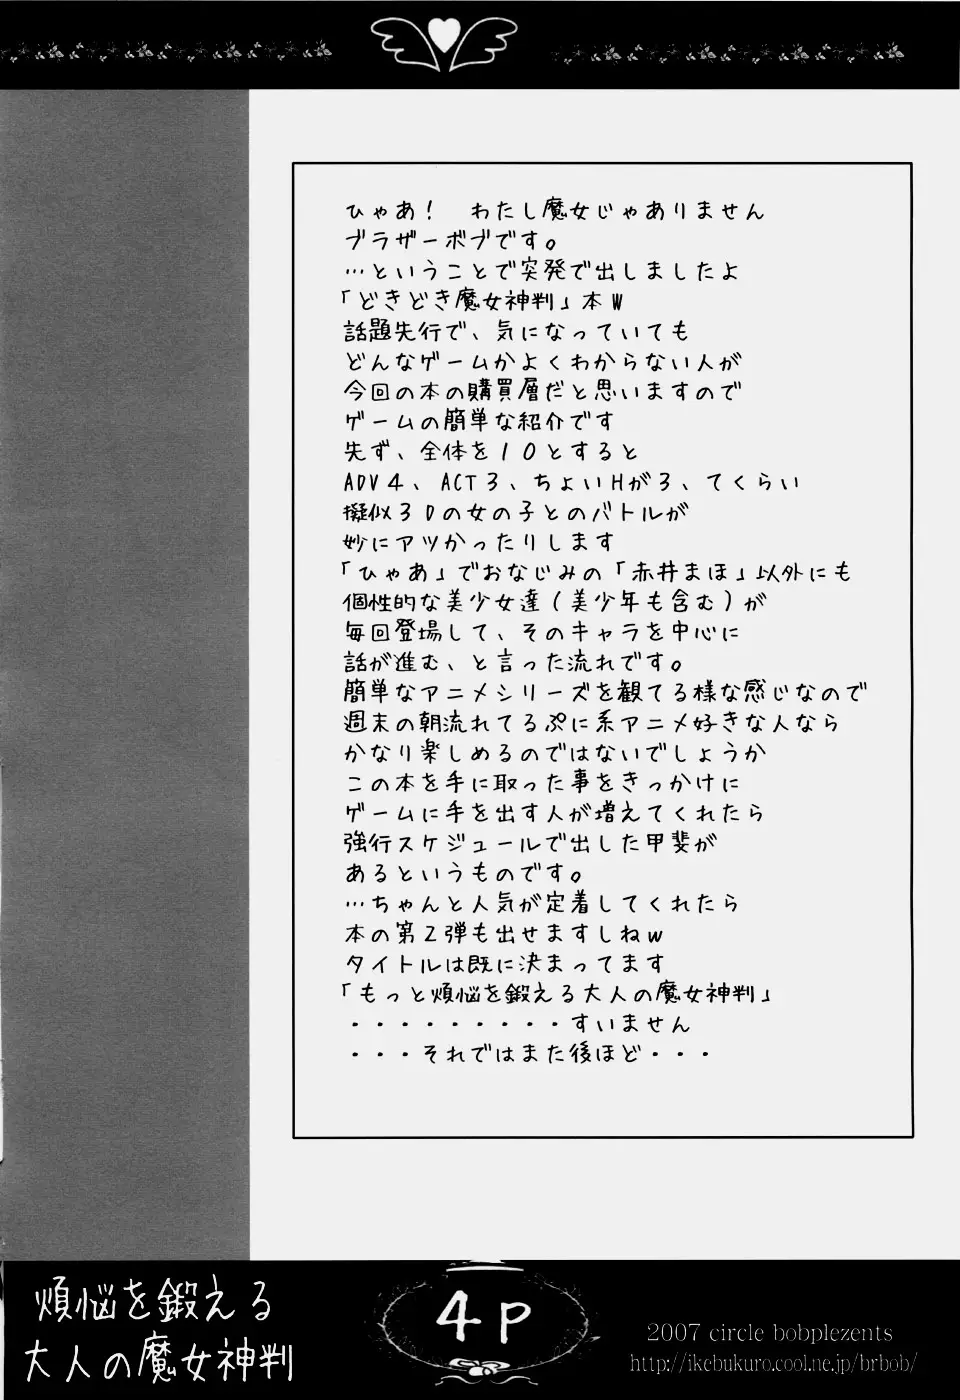 ひゃあ！　わたし魔女じゃありません
ブラザーボブです。
…ということで突発で出しましたよ
「どきどき魔女神判」本W
話題先行で、気になっていても
どんなゲームかよくわからない人が
今回の本の購買層だと思いますので
ゲームの簡単な紹介です
先ず、全体を１０とすると
ADV４、ACT３、ちょいHが３、てくらい
擬似３Dの女の子とのバトルが
妙にアツかったりします
「ひゃあ」でおなじみの「赤井まほ」以外にも
個性的な美少女達（美少年も含む）が
毎回登場して、そのキャラを中心に
話が進む、と言った流れです。
簡単なアニメシリーズを観てる様な感じなので
週末の朝流れてるぷに系アニメ好きな人なら
かなり楽しめるのではないでしょうか
この本を手に取った事をきっかけに
ゲームに手を出す人が増えてくれたら
強行スケジュールで出した甲斐が
あるというものです。
…ちゃんと人気が定着してくれたら
本の第２弾も出せますしねw
タイトルは既に決まってます
「もっと煩悩を鍛える大人の魔女神判」
・・・・・・・・・すいません
・・・それではまた後ほど・・・
煩悩を鍛える
大人の魔女神判
4P
2007 circle bobplezents
http://ikebukuro.cool.ne.jp/brbob/